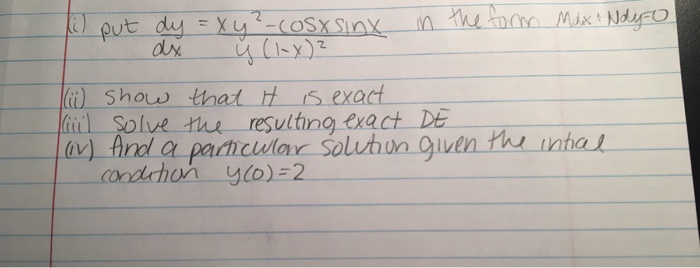 (i) put dy/dx = xy²-cosxsinx / y(1-x)² in the form Mdx+Ndy=0
(ii) show that it is exact
(iii) solve the resulting exact DE
(iv) find a particular solution given the intial
condition y(0)=2